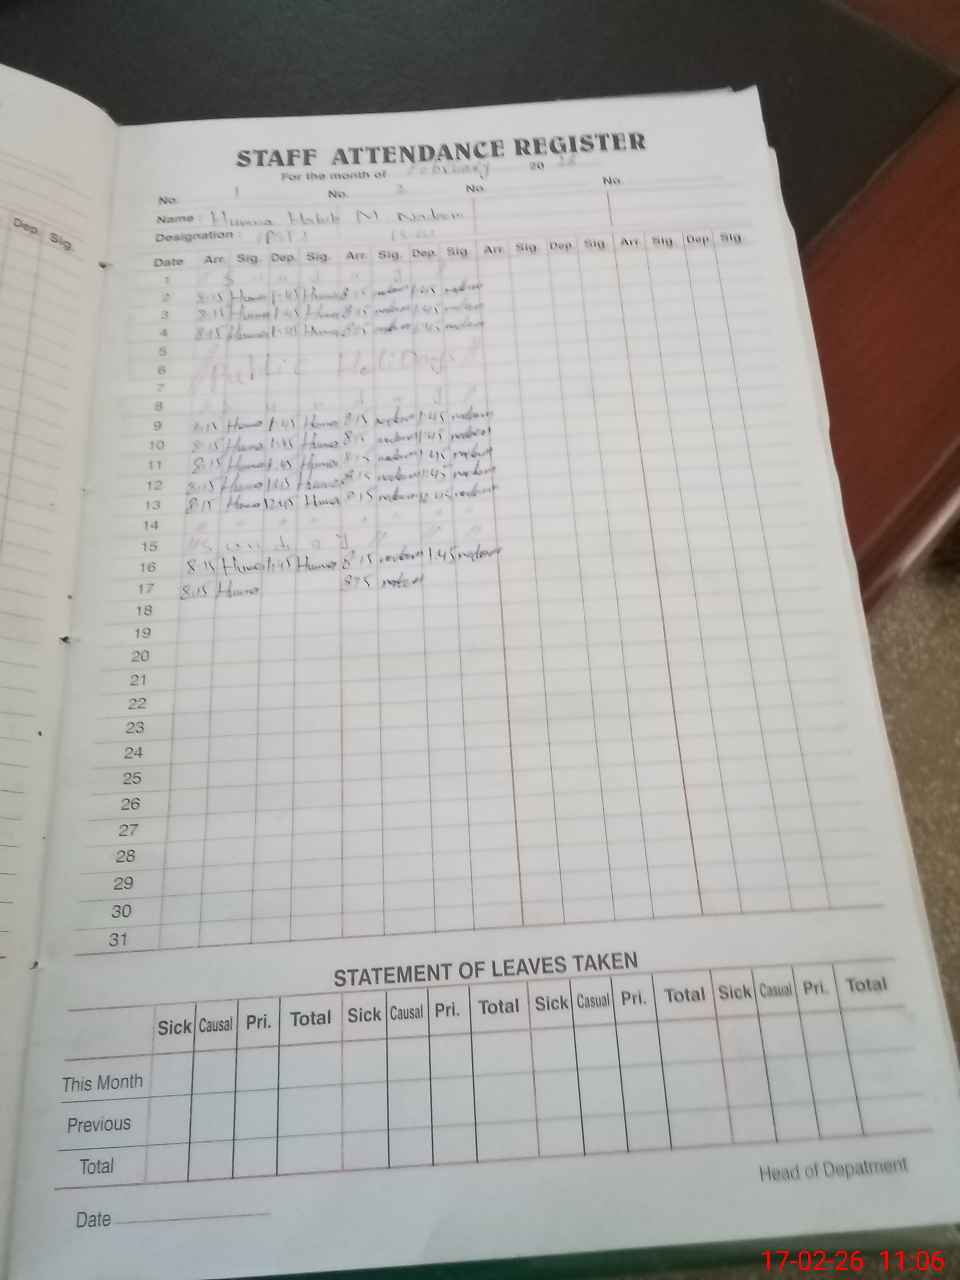 Dep. Sig.
STAFF ATTENDANCE REGISTER
For the month of February 20 26
No. 1 No. 2 No. No.
Name : Huma Habib M. Nadeem
Designation : PST
Date Arr. Sig. Dep. Sig. Arr. Sig. Dep. Sig. Arr. Sig. Dep. Sig. Arr. Sig. Dep Sig.
1
2 8:15 Huma 1:45 Huma 8:15 nadeem 1:45 nadeem
3 8:15 Huma 1:45 Huma 8:15 nadeem 1:45 nadeem
4 8:15 Huma 1:45 Huma 8:15 nadeem 1:45 nadeem
5
6 Public Holidays
7
8
9 8:15 Huma 1:45 Huma 8:15 nadeem 1:45 nadeem
10 8:15 Huma 1:45 Huma 8:15 nadeem 1:45 nadeem
11 8:15 Huma 1:45 Huma 8:15 nadeem 1:45 nadeem
12 8:15 Huma 1:45 Huma 8:15 nadeem 1:45 nadeem
13 8:15 Huma 12:45 Huma 8:15 nadeem 12:45 nadeem
14
15 " S u n d a y "
16 8:15 Huma 1:45 Huma 8:15 nadeem 1:45 nadeem
17 8:15 Huma 8:15 nadeem
18
19
20
21
22
23
24
25
26
27
28
29
30
31
STATEMENT OF LEAVES TAKEN
Sick Causal Pri. Total Sick Causal Pri. Total Sick Casual Pri. Total Sick Casual Pri. Total
This Month
Previous
Total
Head of Depatment
Date
17-02-26 11:06